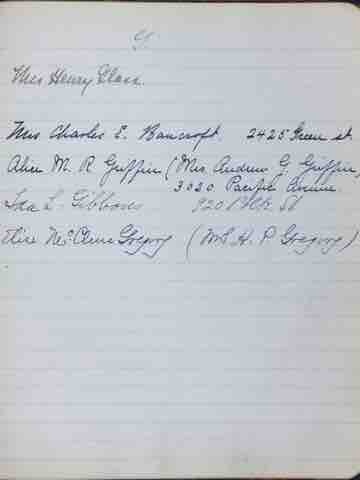 G
Mrs Henry Glass.
Mrs Charles E. Bancroft. 2425 Green st.
Alice M. R. Griffin (Mrs. Andrew G. Griffin,
3020 Pacific Avenue.
Ida L. Gibbons 920 Polk St
McClure Gregory (Mrs H. P. Gregory)